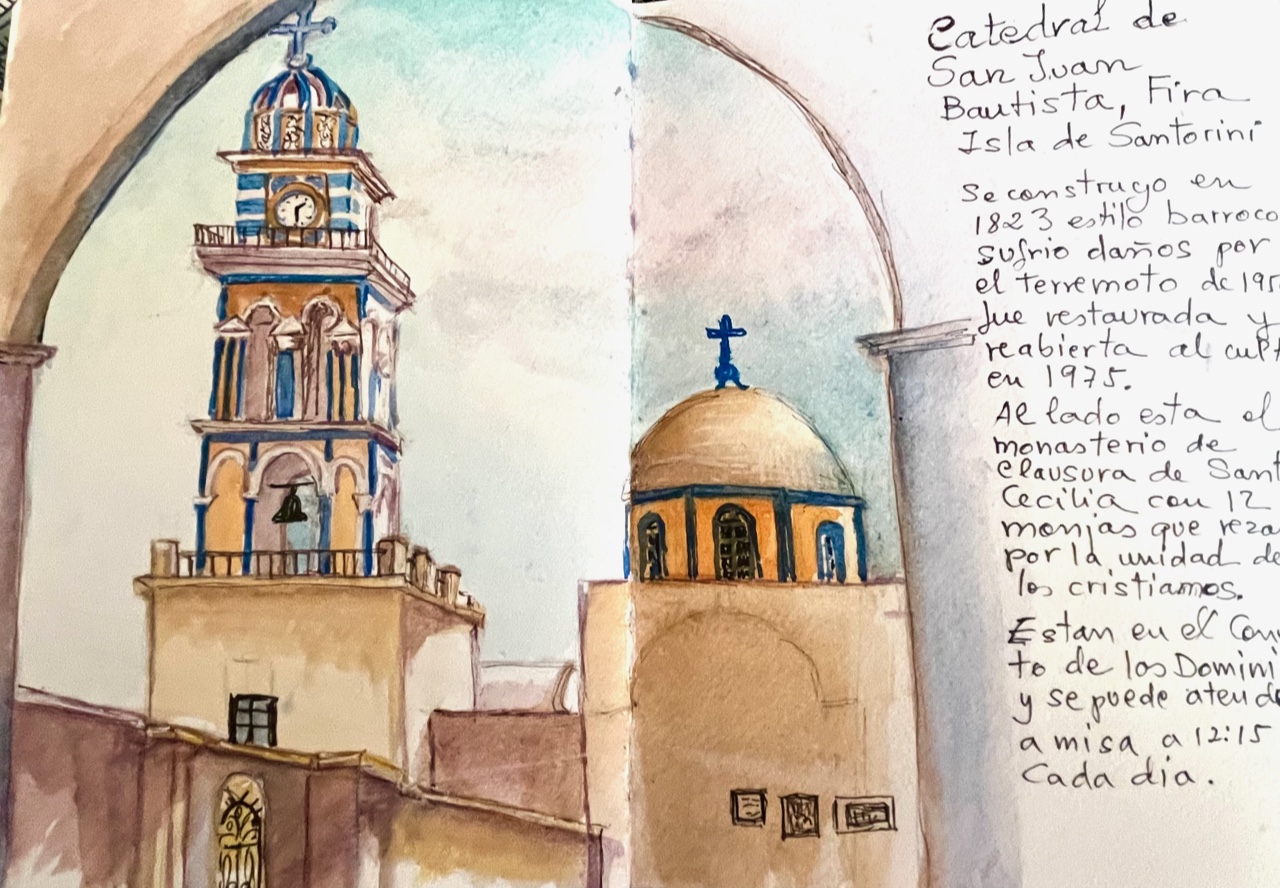 Catedral de
San Juan
Bautista, Fira
Isla de Santorini
Se construyo en
1823 estilo barroco
sufrio daños por
el terremoto de 195
fue restaurada y
reabierta al cult
en 1975.
Al lado esta el
monasterio de
clausura de Sant
Cecilia con 12
monjas que reza
por la unidad de
los cristianos.
Estan en el Conv
to de los Domini
y se puede atend
a misa a 12:15
Cada dia.